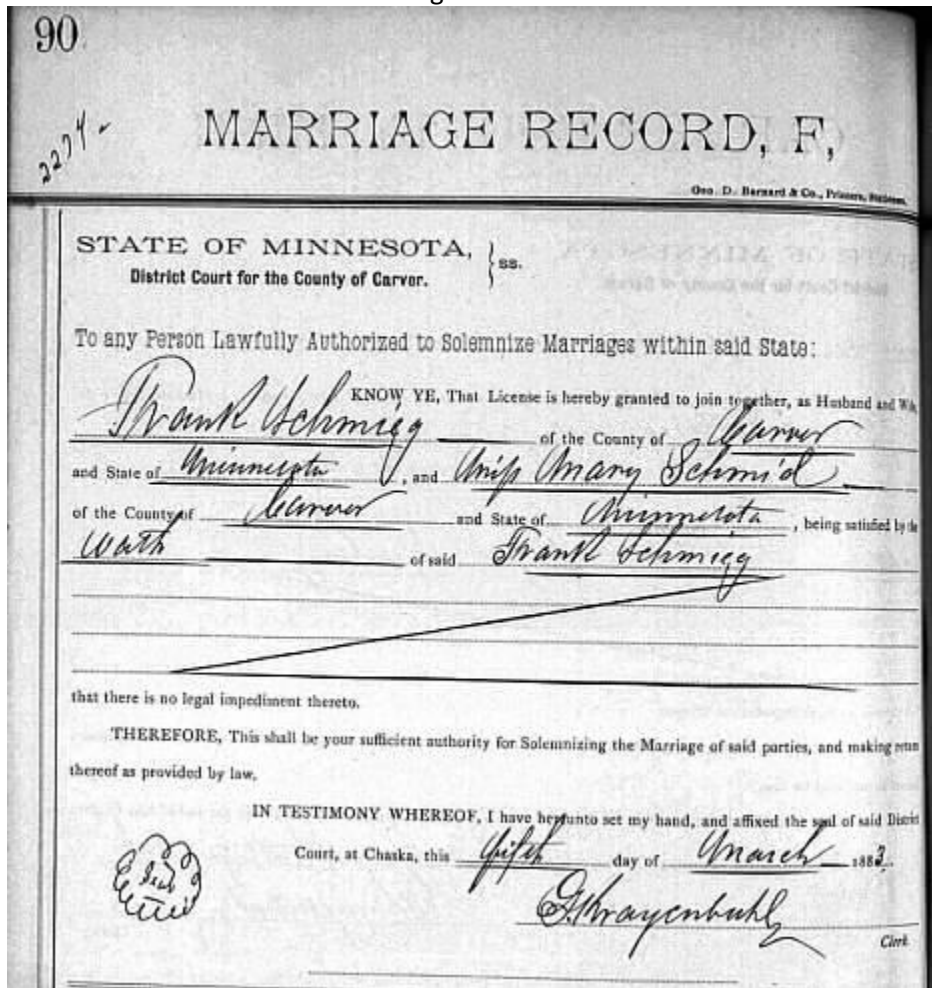 90
2274
MARRIAGE RECORD, F,
Geo. D. Barnard & Co., Printers,
STATE OF MINNESOTA, } ss.
District Court for the County of Carver.
To any Person Lawfully Authorized to Solemnize Marriages within said State:
KNOW YE, That License is hereby granted to join together, as Husband and Wife,
Frank Schmieg of the County of Carver
and State of Minnesota, and Miss Mary Schmid
of the County of Carver and State of Minnesota, being satisfied by the
Oath of said Frank Schmieg
that there is no legal impediment thereto.
THEREFORE, This shall be your sufficient authority for Solemnizing the Marriage of said parties, and making return
thereof as provided by law.
IN TESTIMONY WHEREOF, I have hereunto set my hand, and affixed the seal of said District
Court, at Chaska, this fifth day of March 1883.
Seal
G. Krayenbuhl
Clerk